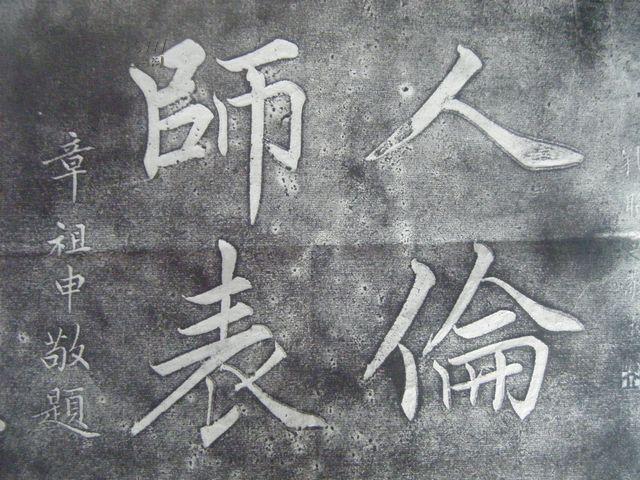 人倫
師表
章祖申敬題